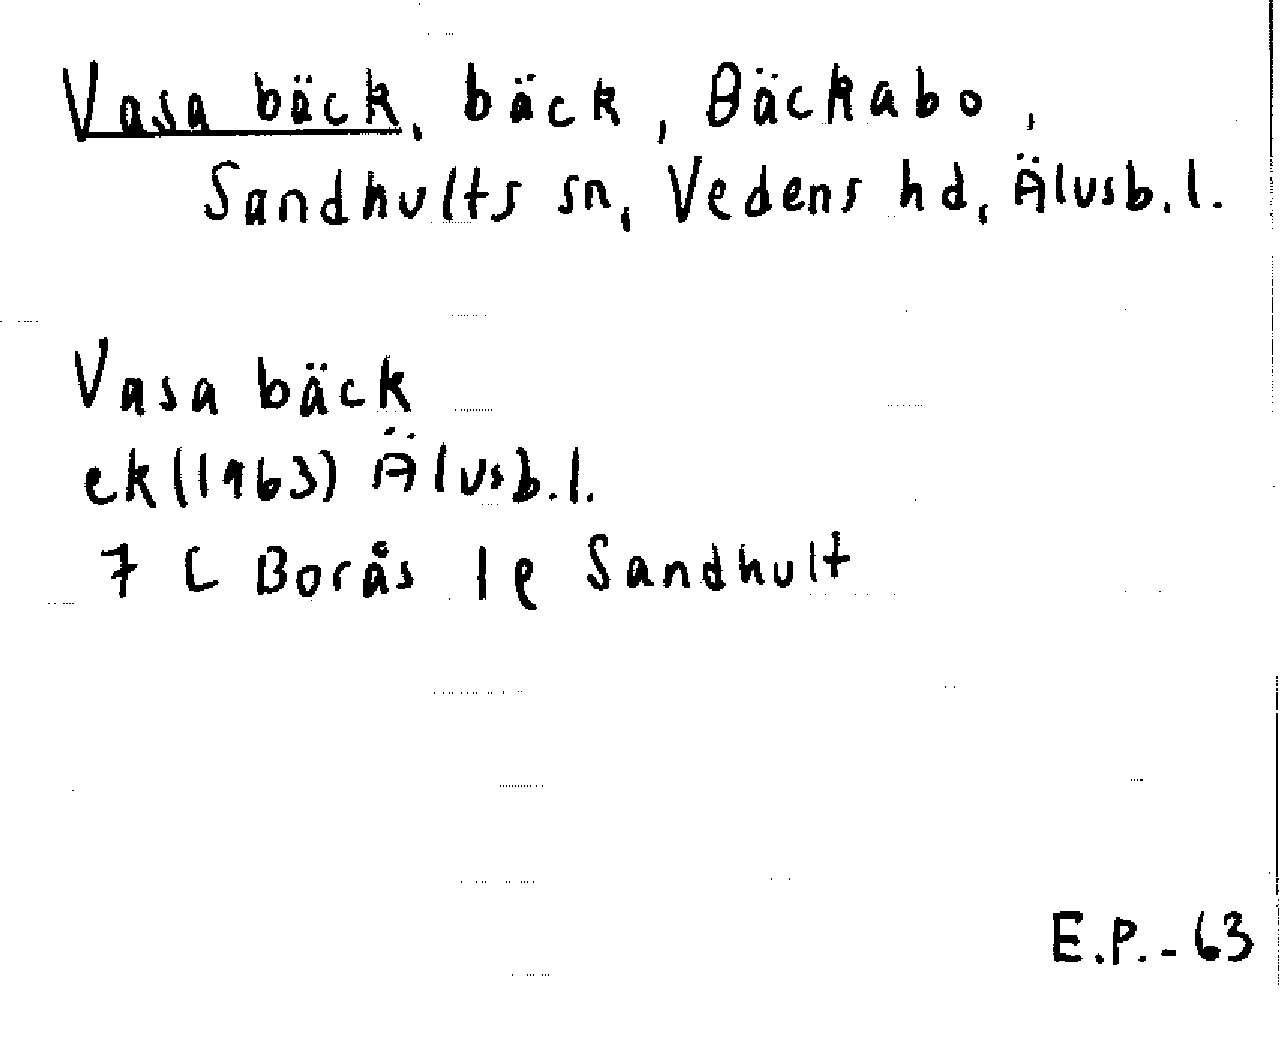 Vasa bäck, bäck, Bäckabo,
Sandhults sn, Vedens hd, Älvsb.l.
Vasa bäck
ek(1963) Älvsb.l.
7 C Borås 1e Sandhult
E.P.-63